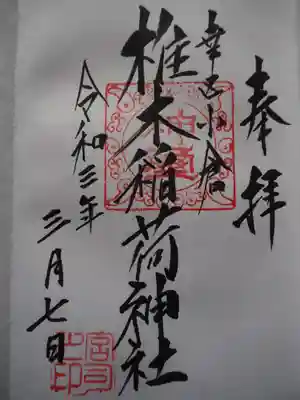 奉拝
幸区小倉
椎木稲荷神社
令和三年
三月七日
宮司之印